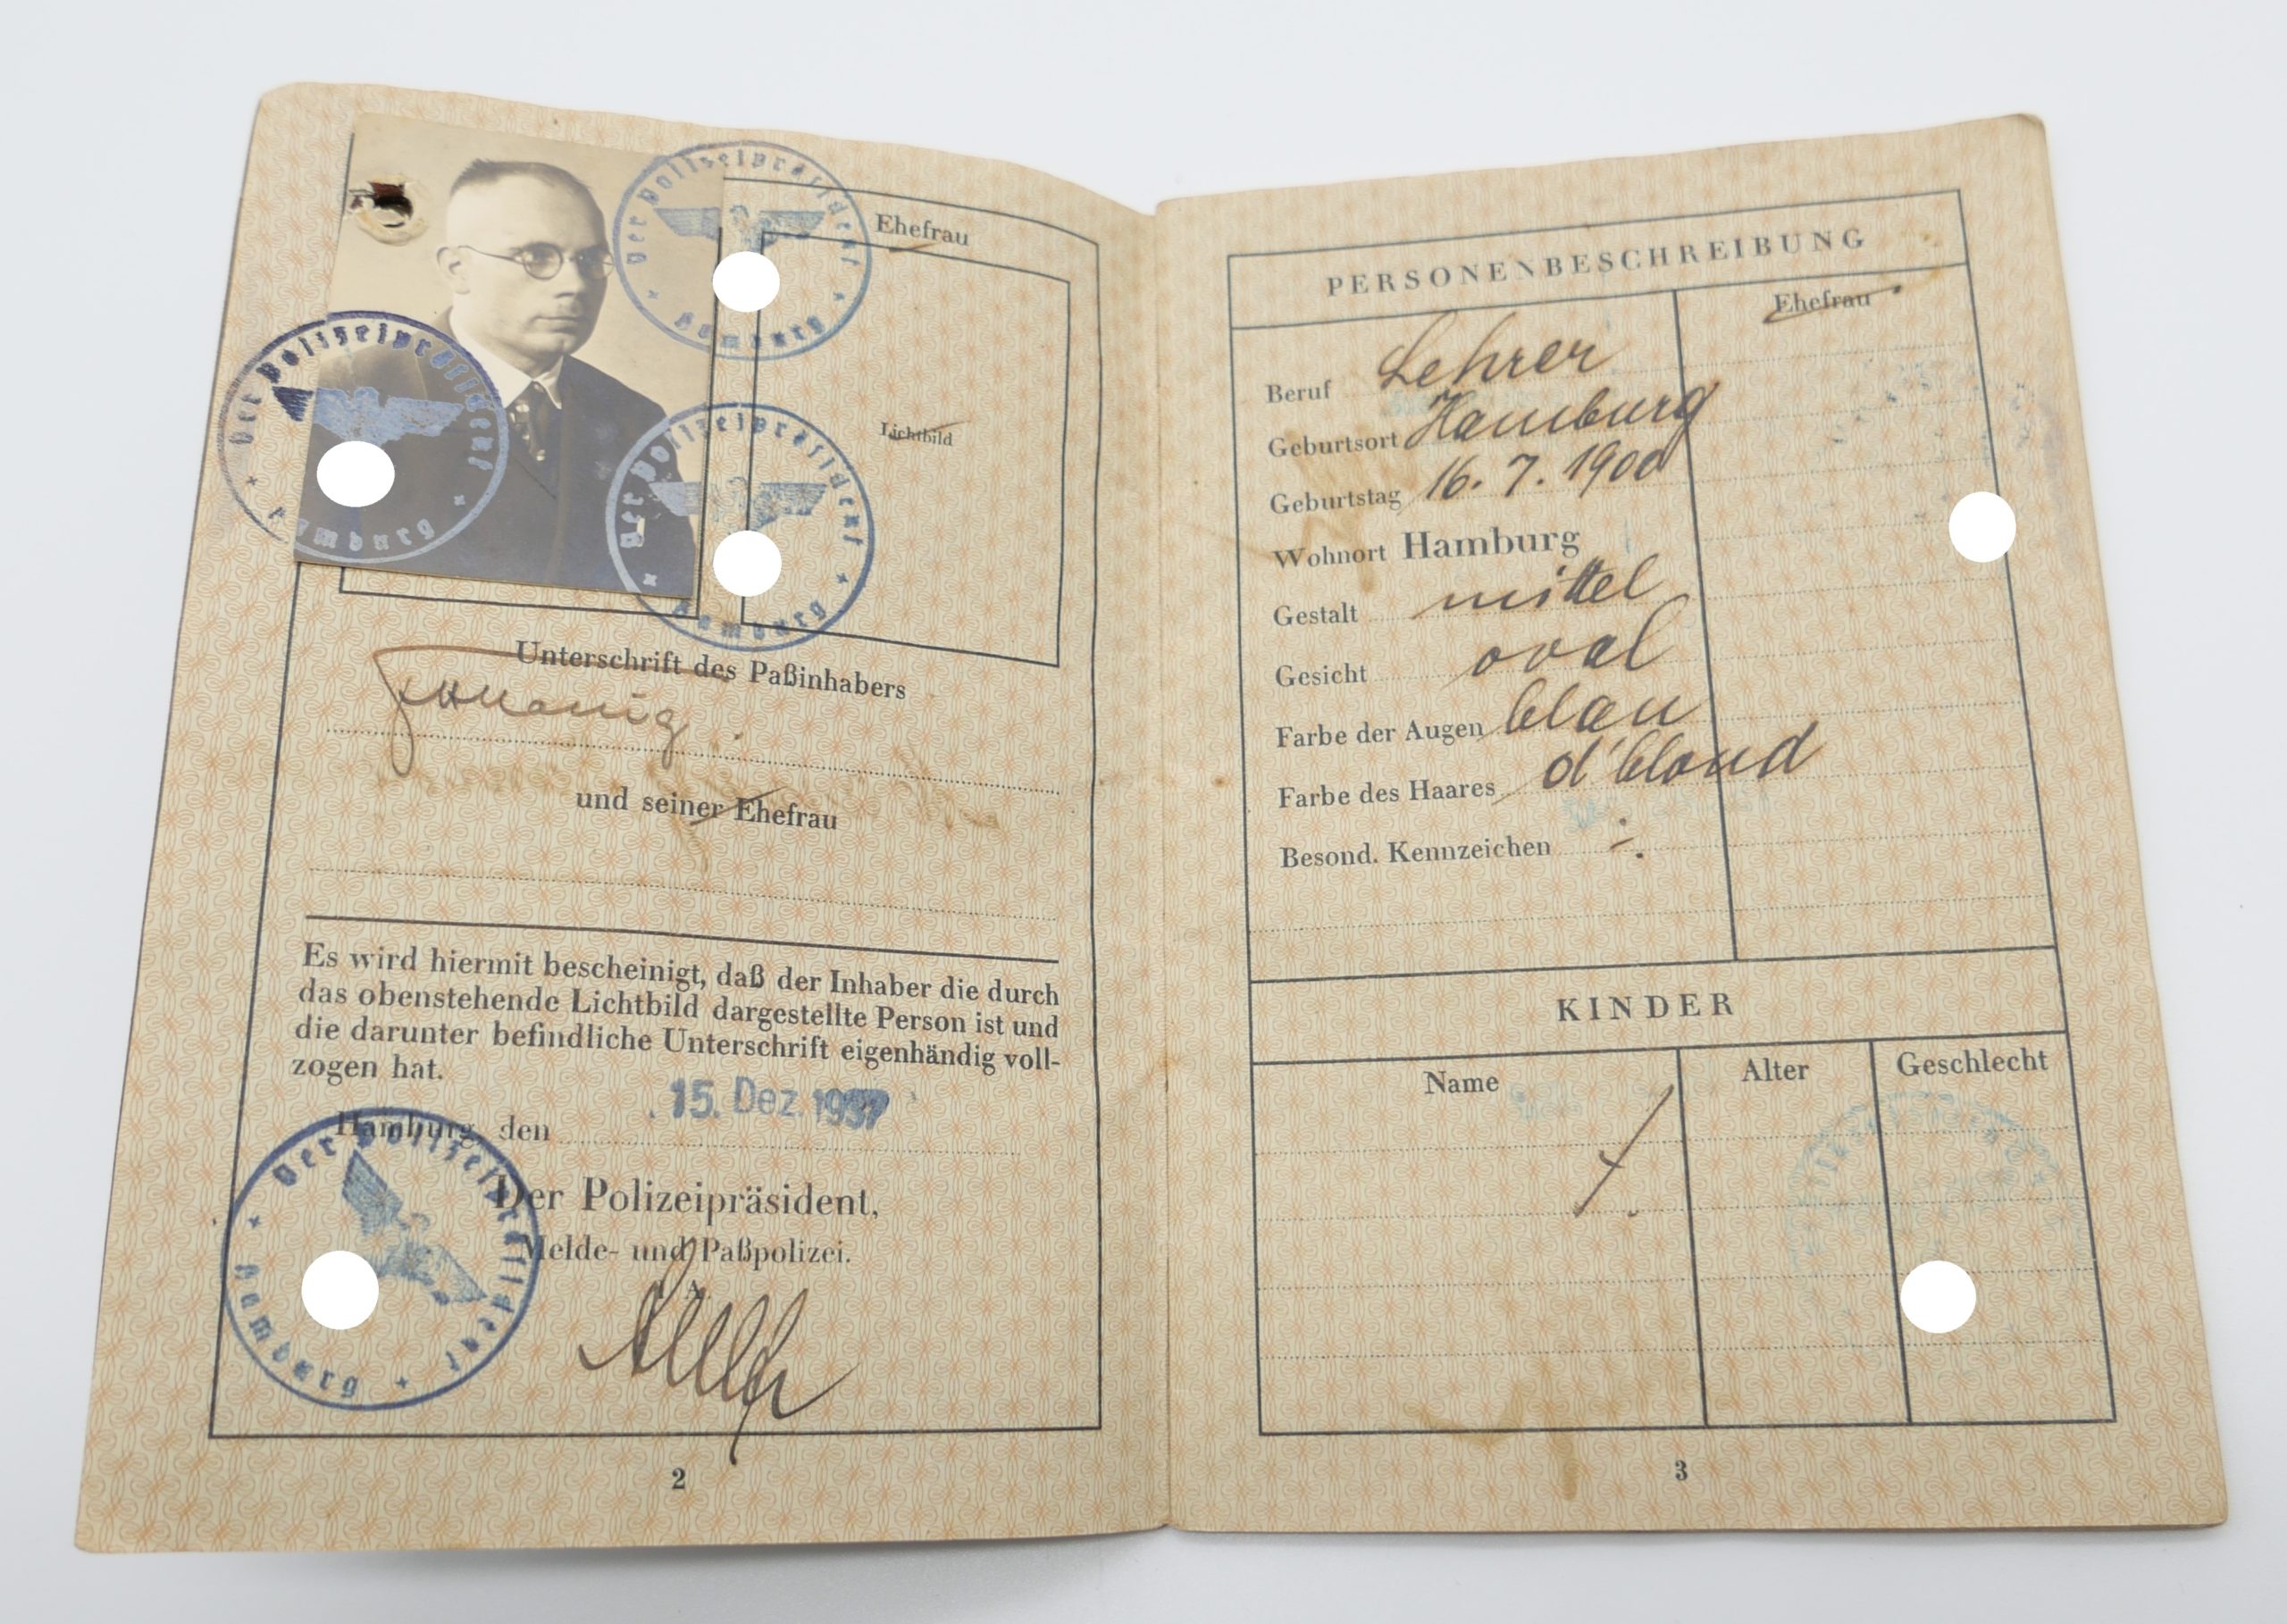 Der Polizeipräsident
Hamburg
Ehefrau
Lichtbild
Der Polizeipräsident
Hamburg
Der Polizeipräsident
Hamburg
Unterschrift des Paßinhabers
und seiner Ehefrau
Es wird hiermit bescheinigt, daß der Inhaber die durch
das obenstehende Lichtbild dargestellte Person ist und
die darunter befindliche Unterschrift eigenhändig voll-
zogen hat.
Hamburg, den 15. Dez. 1937
Der Polizeipräsident,
Melde- und Paßpolizei.
Der Polizeipräsident
Hamburg
2
PERSONENBESCHREIBUNG
Ehefrau
Beruf Lehrer
Geburtsort Hamburg
Geburtstag 16. 7. 1900
Wohnort Hamburg
Gestalt mittel
Gesicht oval
Farbe der Augen blau
Farbe des Haares d'blond
Besond. Kennzeichen ÷
KINDER
Name Alter Geschlecht
3